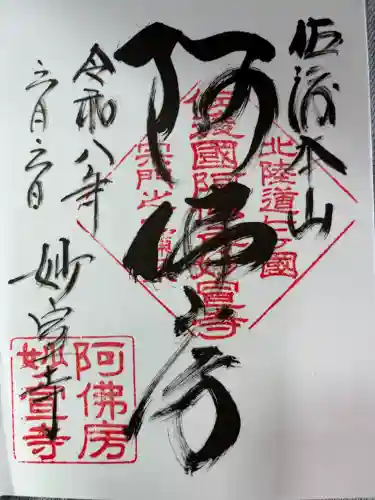 佐渡本山
阿佛房
令和八年
六月六日
妙宣寺
北陸道七國
佐渡國阿佛房妙宣寺
阿佛房
妙宣寺